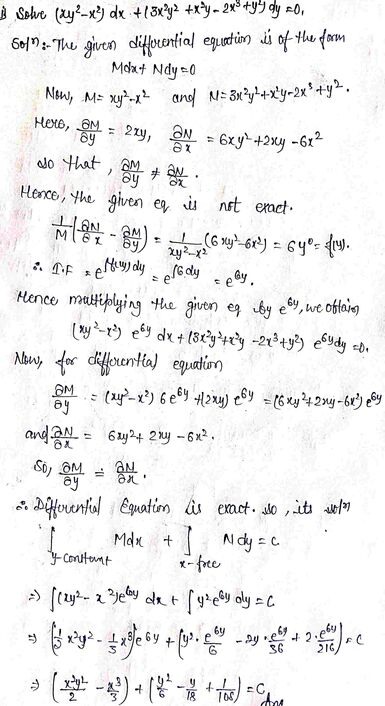 1) Solve (xy²-x²) dx + (3x²y² + x²y - 2x³ + y²) dy = 0.
Solⁿ:- The given differential equation is of the form
Mdx + Ndy = 0
Now, M = xy²-x² and N = 3x²y² + x²y - 2x³ + y².
Here, ∂M/∂y = 2xy, ∂N/∂x = 6xy² + 2xy - 6x²
so that, ∂M/∂y ≠ ∂N/∂x.
Hence, the given eq is not exact.
1/M (∂N/∂x - ∂M/∂y) = 1/(xy²-x²) (6xy²-6x²) = 6y⁰ = f(y).
∴ I.F = e^∫f(y)dy = e^∫6dy = e^6y.
Hence multiplying the given eq by e^6y, we obtain
(xy²-x²) e^6y dx + (3x²y² + x²y - 2x³ + y²) e^6y dy = 0.
Now, for differential equation
∂M/∂y = (xy²-x²) 6e^6y + (2xy) e^6y = (6xy² + 2xy - 6x²) e^6y
and ∂N/∂x = 6xy² + 2xy - 6x².
So, ∂M/∂y = ∂N/∂x.
∴ Differential Equation is exact. so, its solⁿ
∫ y-constant Mdx + ∫ x-free Ndy = C
⇒ ∫(xy²-x²)e^6y dx + ∫y² e^6y dy = C
⇒ (1/2 x²y² - 1/3 x³) e^6y + (y². e^6y/6 - 2y. e^6y/36 + 2. e^6y/216) = C
⇒ (x²y²/2 - x³/3) + (y²/6 - y/18 + 1/108) = C
Ans